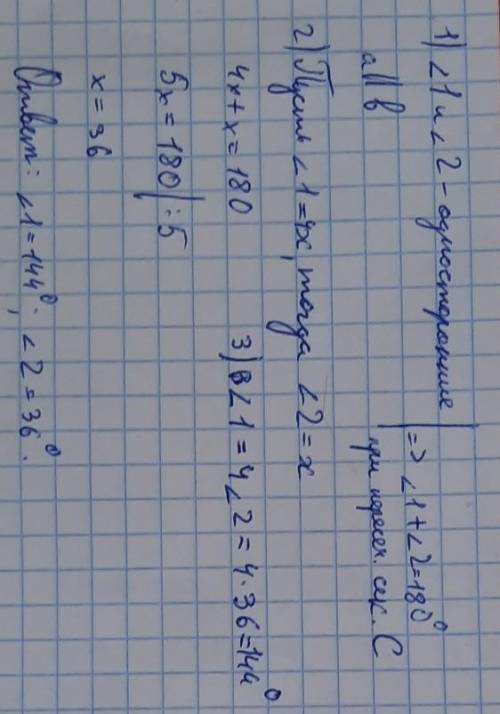 1) ∠1 и ∠2 - односторонние | => ∠1+∠2=180°
a || b | при пересеч. сек. C
2) Пусть ∠1=4x, тогда ∠2=x
4x+x=180
5x=180 | :5
x=36
3) ∠1=4∠2=4·36=144°
Ответ: ∠1=144°; ∠2=36°.